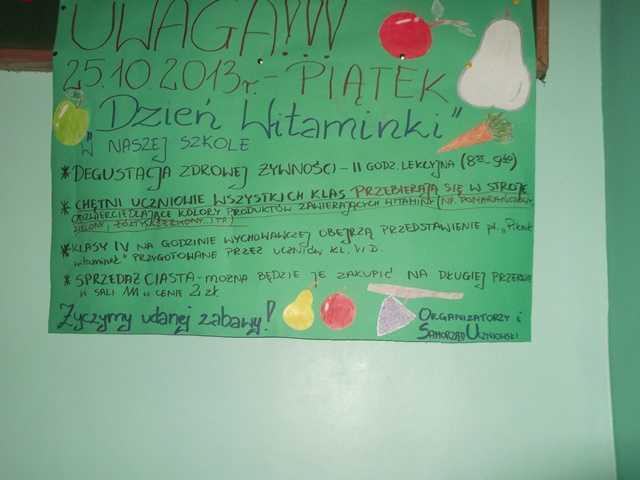 UWAGA!!!
25.10.2013r. - PIĄTEK
"Dzień Witaminki"
W NASZEJ SZKOLE
* DEGUSTACJA ZDROWEJ ŻYWNOŚCI - II GODZ. LEKCYJNA
* CHĘTNI UCZNIOWIE WSZYSTKICH KLAS PRZEBIERAJĄ SIĘ W STROJE
ODZWIERCIEDLAJĄCE KOLORY PRODUKTÓW ZAWIERAJĄCYCH WITAMINY (NP. POMARAŃCZOWY,
ZIELONY, ŻÓŁTY, CZERWONY ITP.)
* KLASY IV NA GODZINIE WYCHOWAWCZEJ OBEJRZĄ PRZEDSTAWIENIE pt. „Piknik
witaminek" PRZYGOTOWANE PRZEZ UCZNIÓW KL. VI D.
* SPRZEDAŻ CIASTA - MOŻNA BĘDZIE JE ZAKUPIĆ NA DŁUGIEJ PRZERWIE
W SALI W CENIE 2 zł
Życzymy udanej zabawy!
ORGANIZATORZY i
SAMORZĄD UCZNIOWSKI